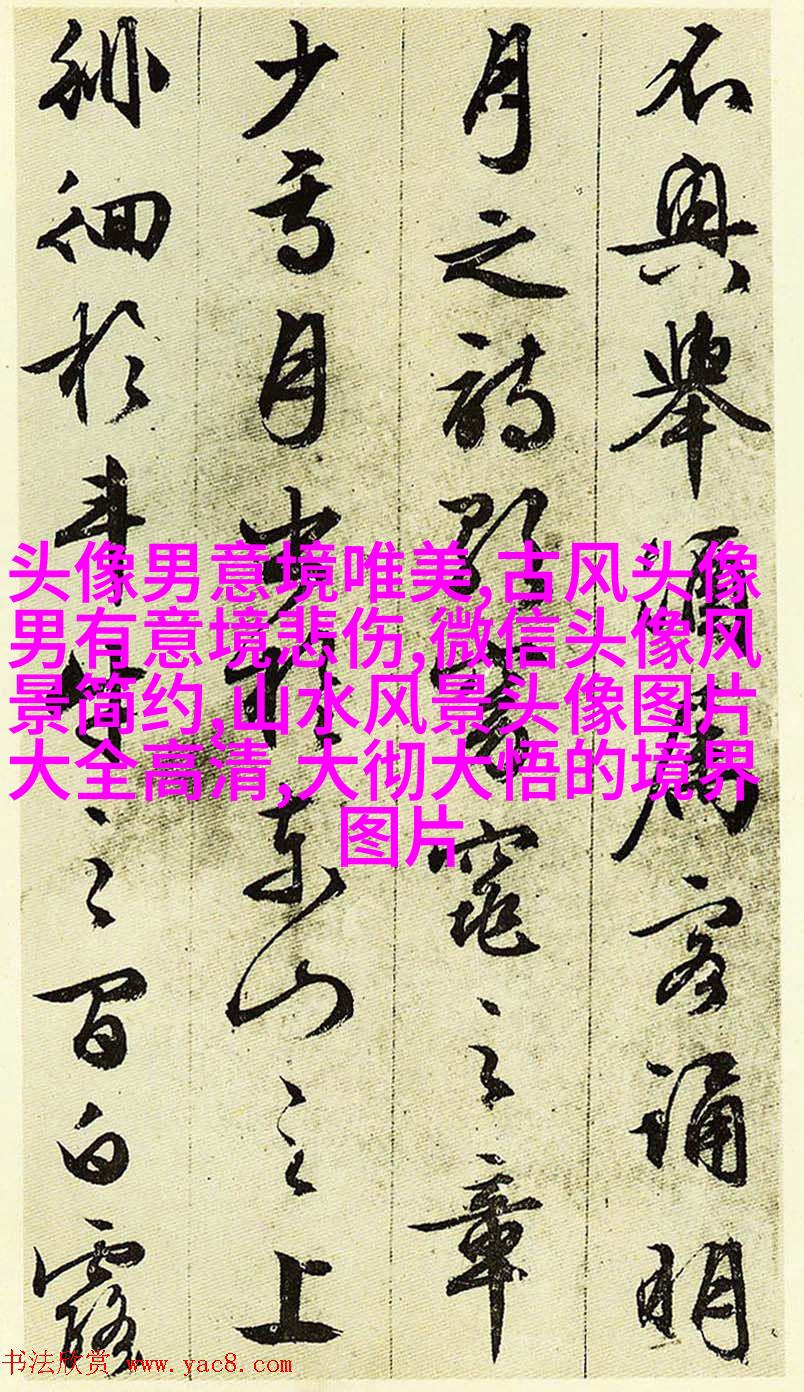 不興舉酒屬客誦明
月之詩歌窈窕之章
少焉月出於東山之上
徘徊於斗牛之間白露
头像男意境唯美,古风头像
男有意境悲伤,微信头像风
景简约,山水风景头像图片
大全高清,大彻大悟的境界
图片
书法欣赏 www.yac8.com